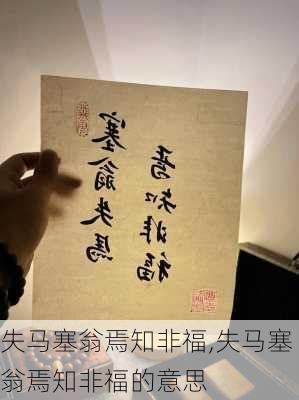 塞翁失馬
焉知非福
失马塞翁焉知非福,失马塞
翁焉知非福的意思